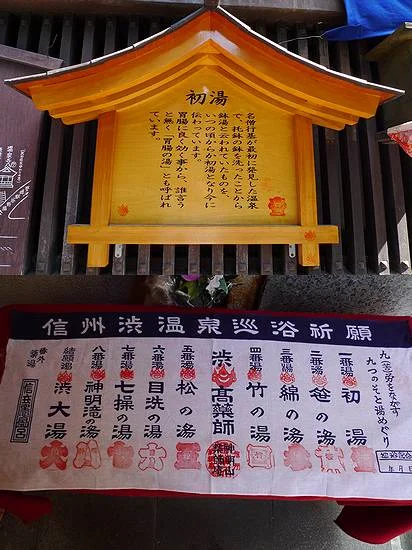 初湯
名僧行基が最初に発見した温泉
で、托鉢の鉢を洗ったことから
鉢湯と云われていたものを、
いつの頃からか初湯となり今に
伝わっています。
胃腸に良く効く事から、誰言う
と無く「胃腸の湯」とも呼ばれ
ています。
信州渋温泉巡浴祈願
九(苦)労をながす
九つのそと湯めぐり
一番湯 初湯
二番湯 笹の湯
三番湯 綿の湯
四番湯 竹の湯
渋高薬師
五番湯 松の湯
六番湯 目洗の湯
七番湯 七操の湯
八番湯 神明滝の湯
結願湯 渋大湯
番外
年 月 日